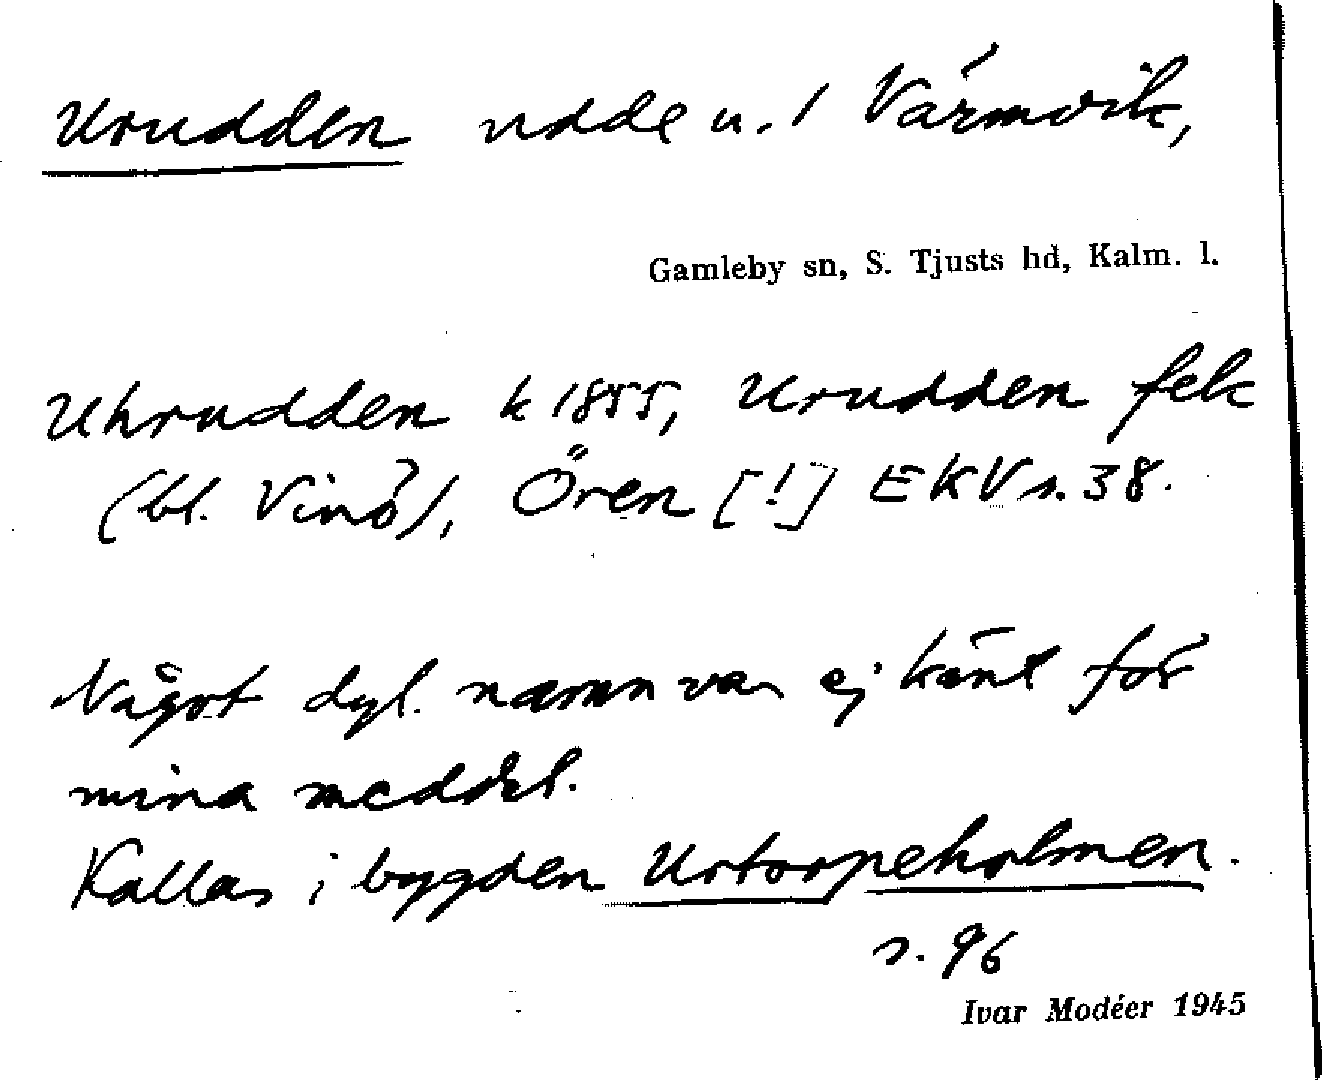 Urudden udde u. 1 Värmvik,
Gamleby sn, S. Tjusts hd, Kalm. l.
Uhrudden k 1855, Urudden fek
(bl. Vinö), Ören [!] EKV s. 38.
Något dyl. namn var ej känt för
mina meddel.
Kallas i bygden Urtorpeholmen.
s. 96
Ivar Modéer 1945